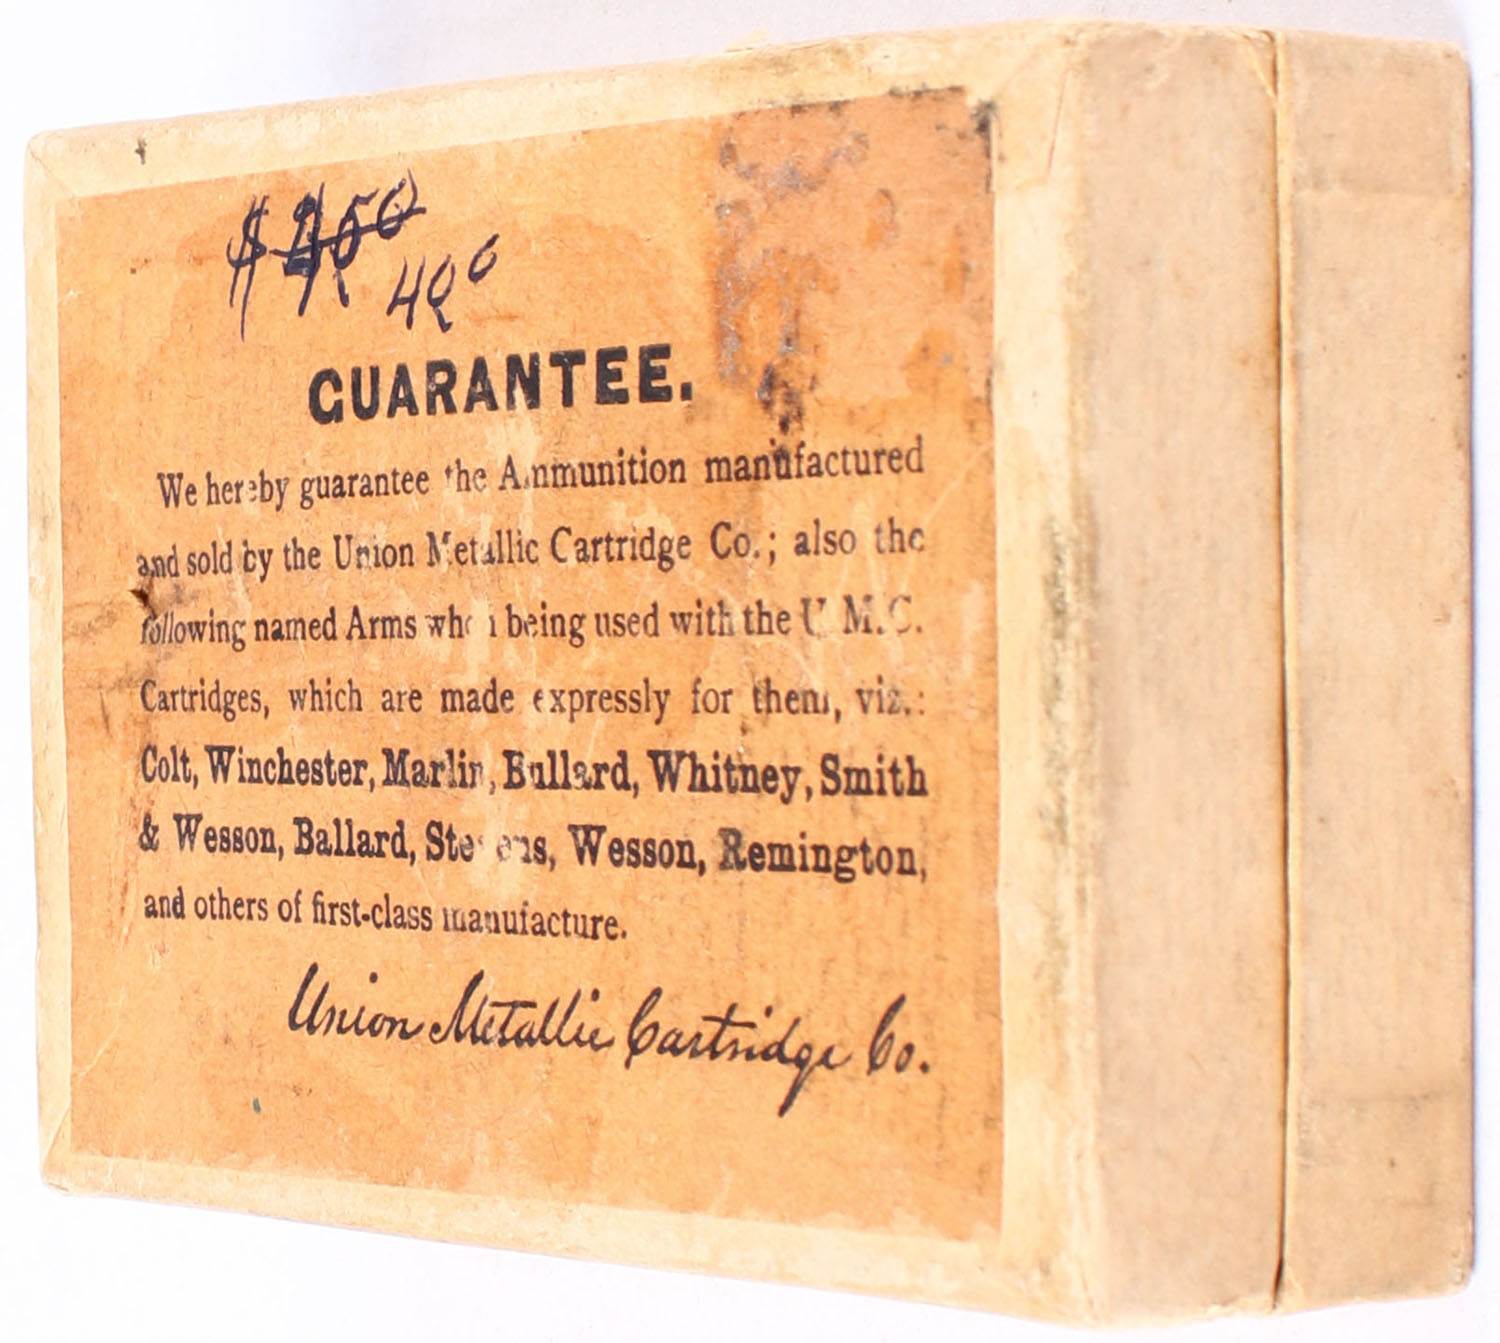 $
4 00
GUARANTEE.
We hereby guarantee the Ammunition manufactured
and sold by the Union Metallic Cartridge Co.; also the
following named Arms when being used with the U. M. C.
Cartridges, which are made expressly for them, viz.:
Colt, Winchester, Marlin, Bullard, Whitney, Smith
& Wesson, Ballard, Stevens, Wesson, Remington,
and others of first-class manufacture.
Union Metallic Cartridge Co.